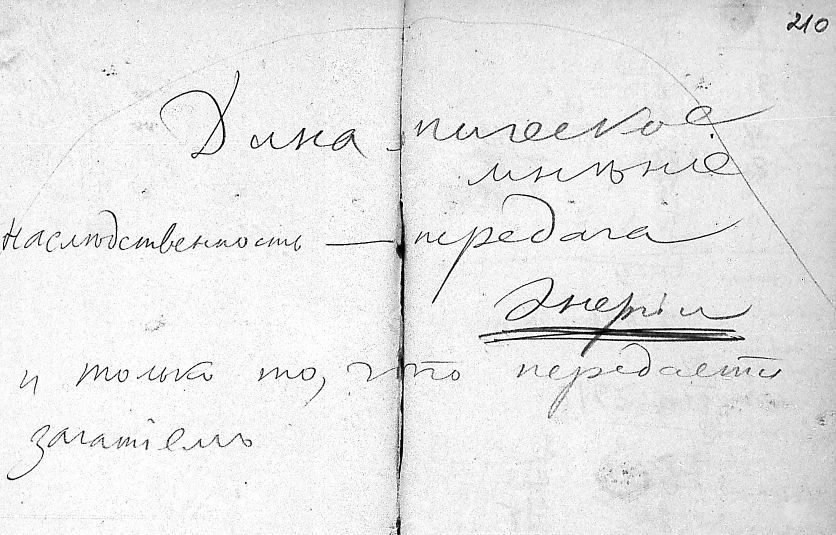 210
Дина-мическое
мнѣніе
Наслѣдственность — передача
Энергіи
и только то, что передаетъ
зачатіемъ